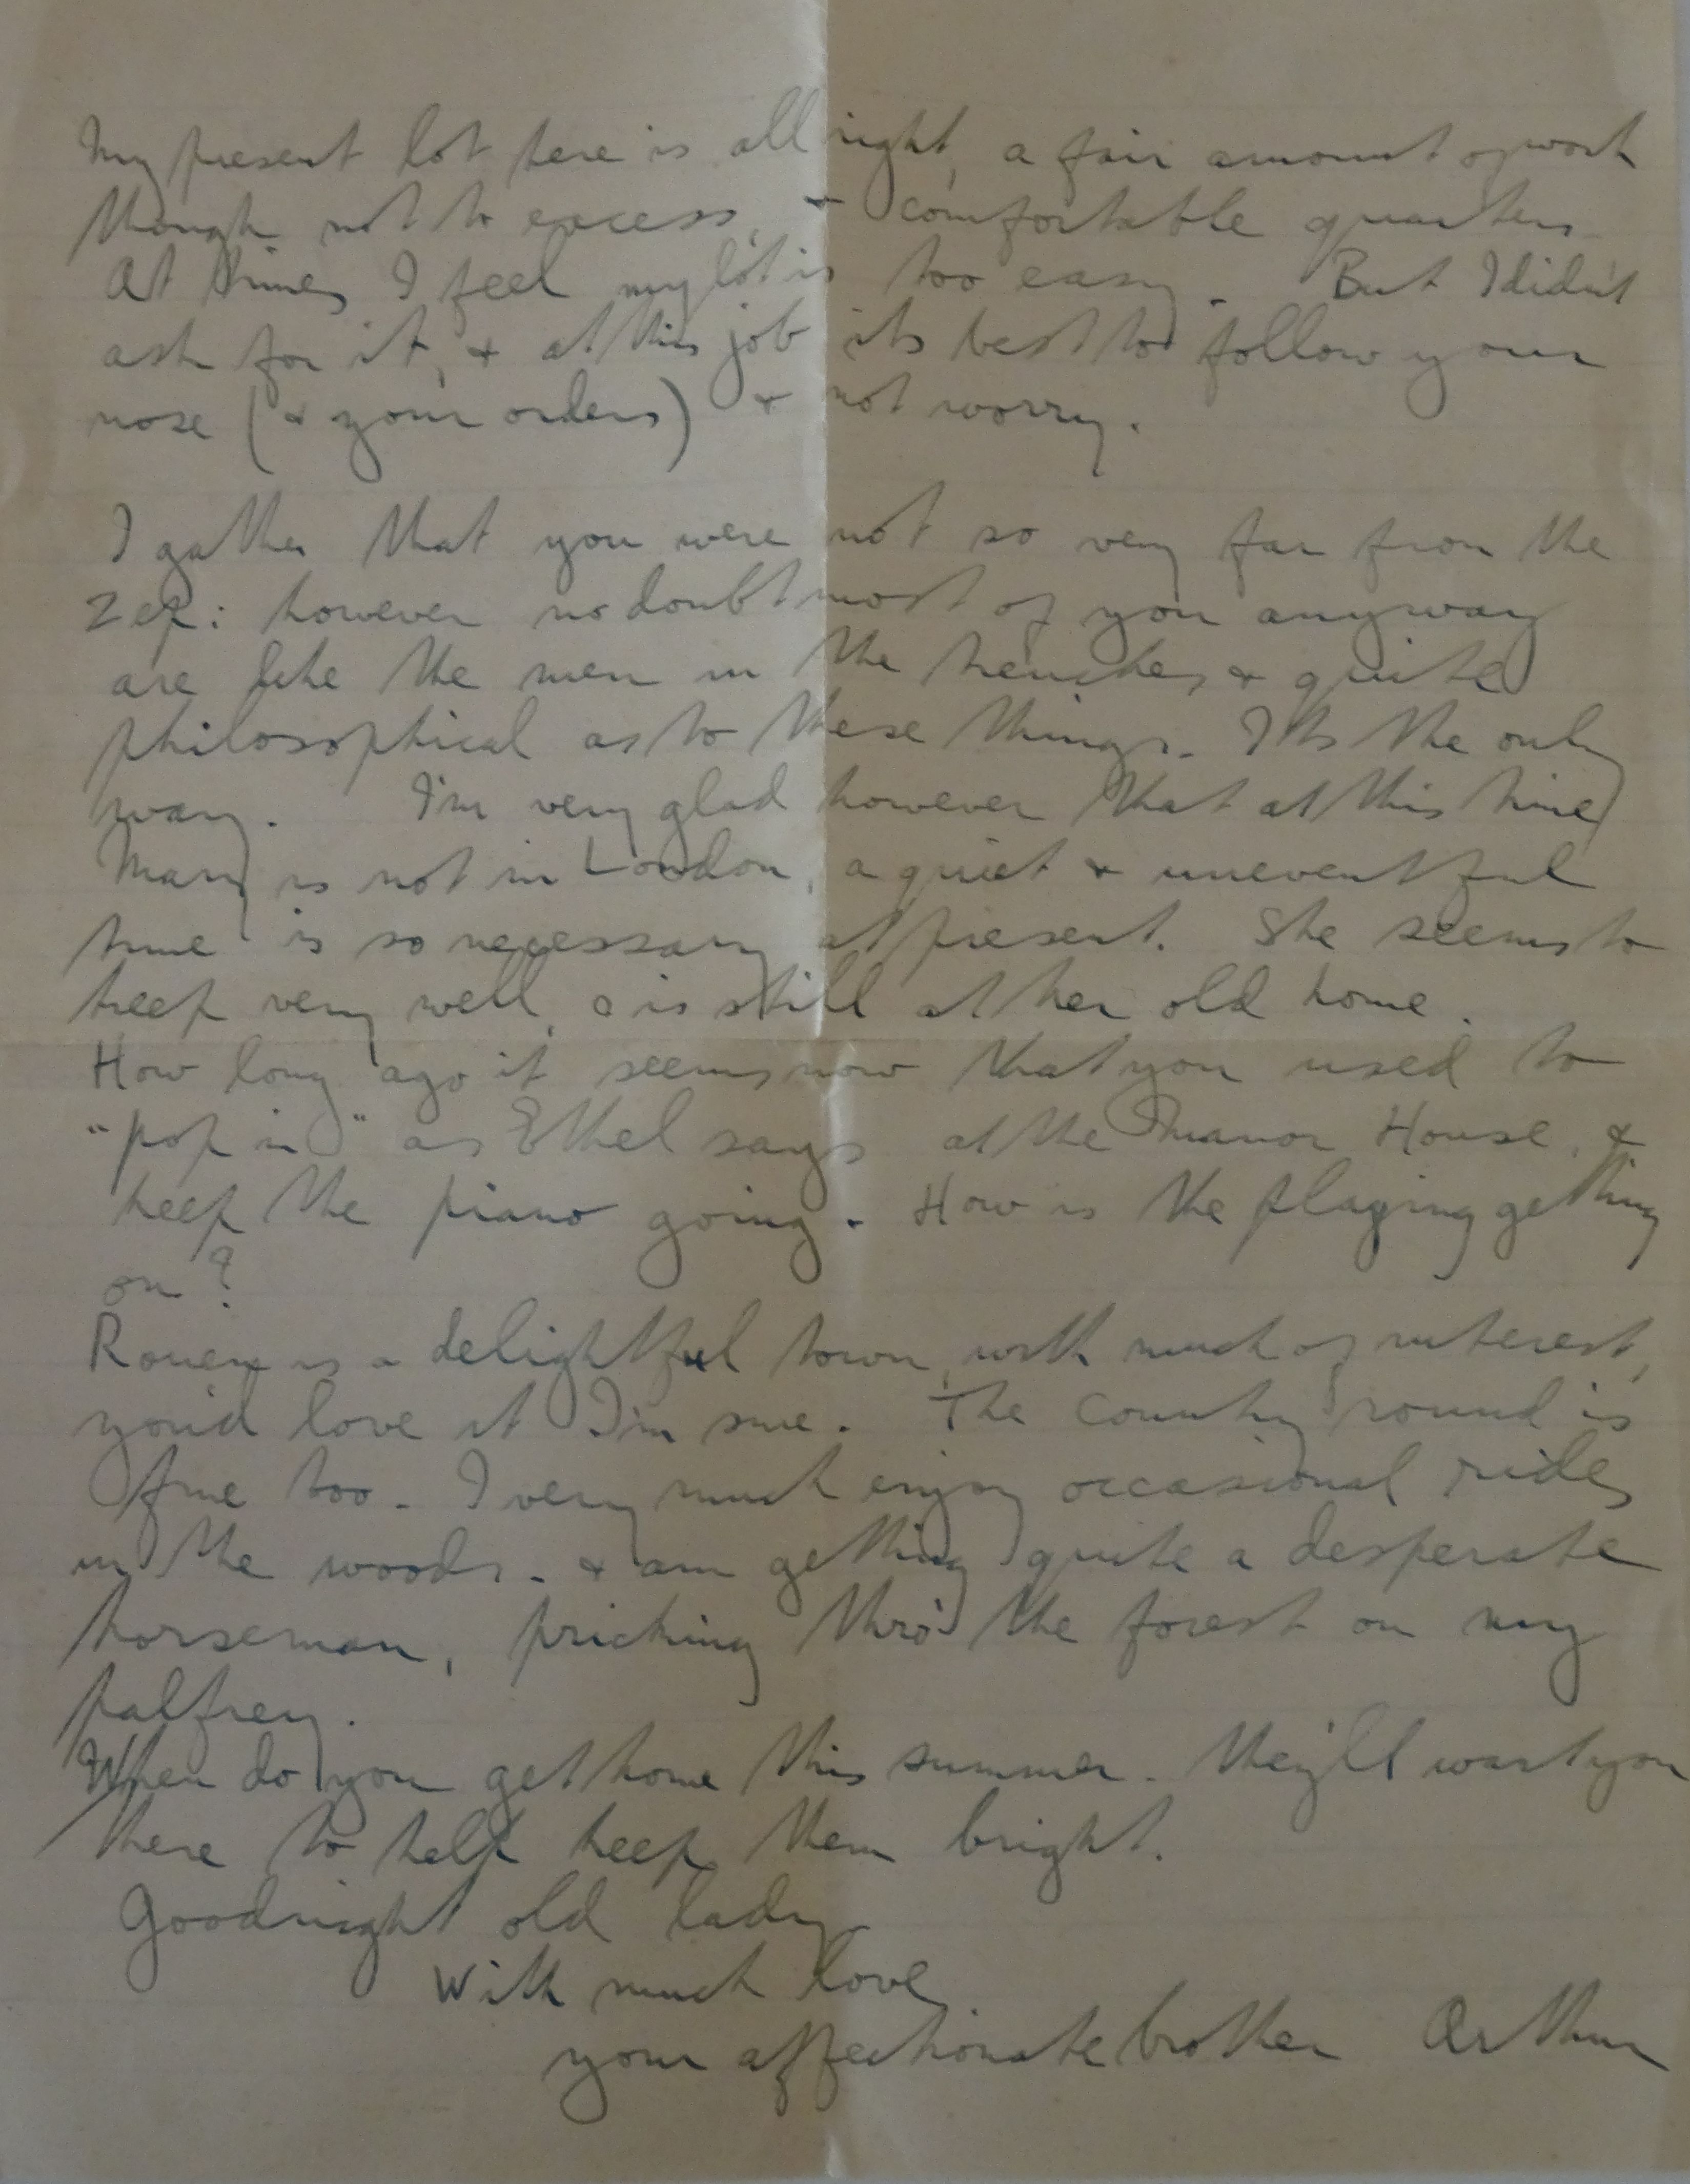 My present lot here is all right, a fair amount of work
though not to excess, & comfortable quarters.
At times I feel my lot is too easy. But I didn't
ask for it, & at this job its best to follow your
nose (& your orders) & not worry.
I gather that you were not so very far from the
Zep: however no doubt most of you anyway
are like the men in the trenches & quite
philosophical as to these things. Its the only
way. I'm very glad however that at this time
Mary is not in London, a quiet & uneventful
time is so necessary at present. She seems to
keep very well, & is still at her old home.
How long ago it seems now that you used to
"pop in" as Ethel says at the Manor House, &
keep the piano going. How is the playing getting
on?
Rouen is a delightful town, with much of interest,
you'd love it I'm sure. The country round is
fine too. I very much enjoy occasional rides
in the woods. & am getting quite a desperate
horseman, pricking thro' the forest on my
palfrey.
When do you get home this summer. They'll want you
there to help keep them bright.
Goodnight old lady
With much love
your affectionate brother Arthur